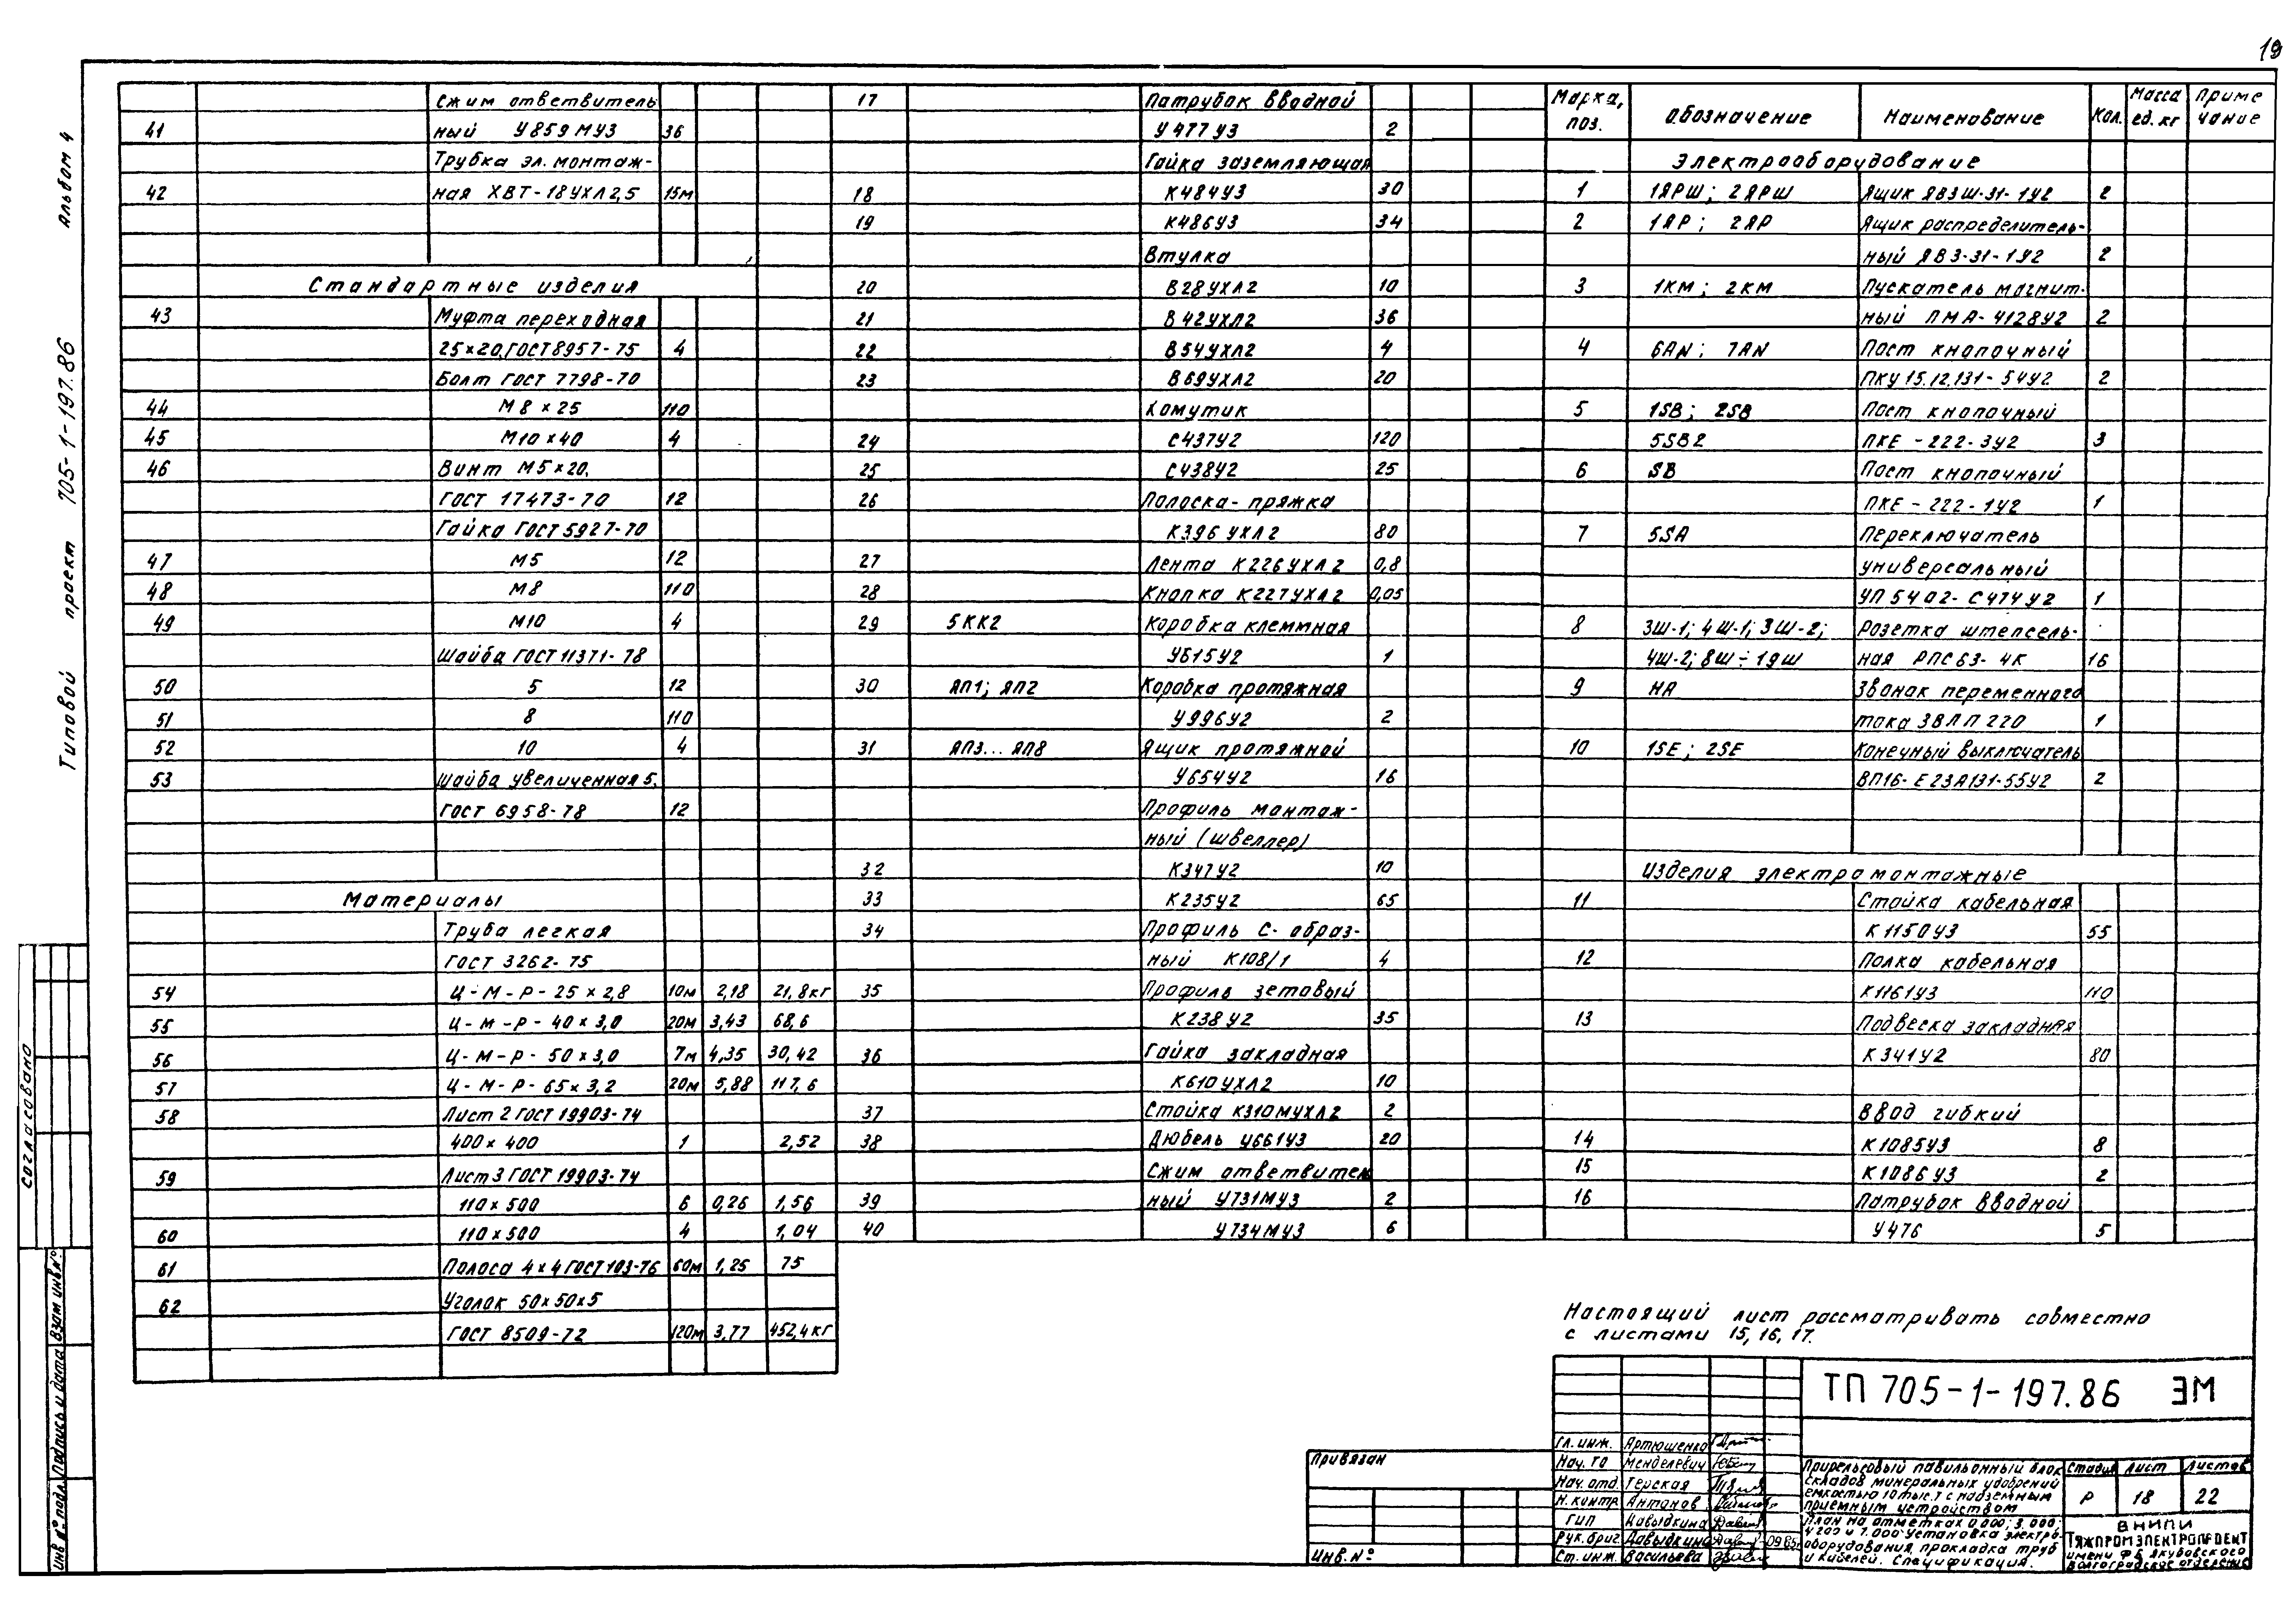 19
Альбом 4
Типовой проект 705-1-197.86
Марка, поз. Обозначение Наименование Кол. Масса ед. кг Приме чание
Электрооборудование
1 1ЯРШ; 2ЯРШ Ящик ЯВЗШ-31-1У2 2
2 1ЯР; 2ЯР Ящик распределитель-
ный ЯВЗ-31-1У2 2
3 1КМ; 2КМ Пускатель магнит-
ный ПМА-4128У2 2
4 6AN; 7AN Пост кнопочный
ПКУ 15.12.131-54У2 2
5 1SB; 2SB Пост кнопочный
5SB2 ПКЕ-222-3У2 3
6 SB Пост кнопочный
ПКЕ-222-1У2 1
7 5SA Переключатель
универсальный
УП 5402-С474У2 1
8 3Ш-1; 4Ш-1; 3Ш-2; Розетка штепсель-
4Ш-2; 8Ш÷19Ш ная РПС 63-4К 16
9 НА Звонок переменного
тока ЗВЛП 220 1
10 1SE; 2SE Конечный выключатель
ВП16-Е23А131-55У2 2
Изделия электромонтажные
11 Стойка кабельная
К1150У3 55
12 Полка кабельная
К1161У3 110
13 Подвеска закладная
К341У2 80
Ввод гибкий
14 К1085У3 8
15 К1086У3 2
16 Патрубок вводной
У476 5
17 Патрубок вводной
У477У3 2
Гайка заземляющая
18 К484У3 30
19 К486У3 34
Втулка
20 В28УХЛ2 10
21 В42УХЛ2 36
22 В54УХЛ2 4
23 В69УХЛ2 20
Хомутик
24 С437У2 120
25 С438У2 25
26 Полоска-пряжка
К396УХЛ2 80
27 Лента К226УХЛ2 0,8
28 Кнопка К227УХЛ2 0,05
29 5КК2 Коробка клеммная
У615У2 1
30 ЯП1; ЯП2 Коробка протяжная
У996У2 2
31 ЯП3...ЯП8 Ящик протяжной
У654У2 16
Профиль монтаж-
ный (швеллер)
32 К347У2 10
33 К235У2 65
34 Профиль С-образ-
ный К108/1 4
35 Профиль зетовый
К238У2 35
36 Гайка закладная
К610УХЛ2 10
37 Стойка К310МУХЛ2 2
38 Дюбель У661У3 20
Сжим ответвитель
39 ный У731МУ3 2
40 У734МУ3 6
Сжим ответвитель
41 ный У859МУ3 36
Трубка эл. монтаж-
42 ная ХВТ-18УХЛ2,5 15м
Стандартные изделия
43 Муфта переходная
25×20 ГОСТ 8957-75 4
Болт ГОСТ 7798-70
44 М8×25 110
45 М10×40 4
46 Винт М5×20.
ГОСТ 17473-70 12
Гайка ГОСТ 5927-70
47 М5 12
48 М8 110
49 М10 4
Шайба ГОСТ 11371-78
50 5 12
51 8 110
52 10 4
53 Шайба увеличенная 5.
ГОСТ 6958-78 12
Материалы
Труба легкая
ГОСТ 3262-75
54 Ц-М-Р-25×2,8 10м 2,18 21,8кг
55 Ц-М-Р-40×3,0 20м 3,43 68,6
56 Ц-М-Р-50×3,0 7м 4,35 30,42
57 Ц-М-Р-65×3,2 20м 5,88 117,6
58 Лист 2 ГОСТ 19903-74
400×400 1 2,52
59 Лист 3 ГОСТ 19903-74
110×500 6 0,26 1,56
60 110×500 4 1,04
61 Полоса 4×4 ГОСТ 103-76 60м 1,25 75
62 Уголок 50×50×5
ГОСТ 8509-72 120м 3,77 452,4кг
Настоящий лист рассматривать совместно
с листами 15, 16, 17.
ТП 705-1-197.86 ЭМ
Гл. инж. Артюшенко
Нач. ТО Менделевич
Нач. отд. Терская
Н. контр. Антонов
ГИП Давыдкина
Рук. бриг. Давыдкина 09.85
Ст. инж. Васильева
Прирельсовый павильонный блок
складов минеральных удобрений
емкостью 10 тыс. т с надземным
приемным устройством
Стадия Лист Листов
Р 18 22
План на отметках 0.000; 3.000;
4.200 и 7.000 Установка электро-
оборудования, прокладка труб
и кабелей. Спецификация.
ВНИПИ
ТЯЖПРОМЭЛЕКТРОПРОЕКТ
имени Ф.Б. Якубовского
Волгоградское отделение
Привязан
Инв. №
Согласовано
Взам. инв. №
Подпись и дата
Инв. № подл.